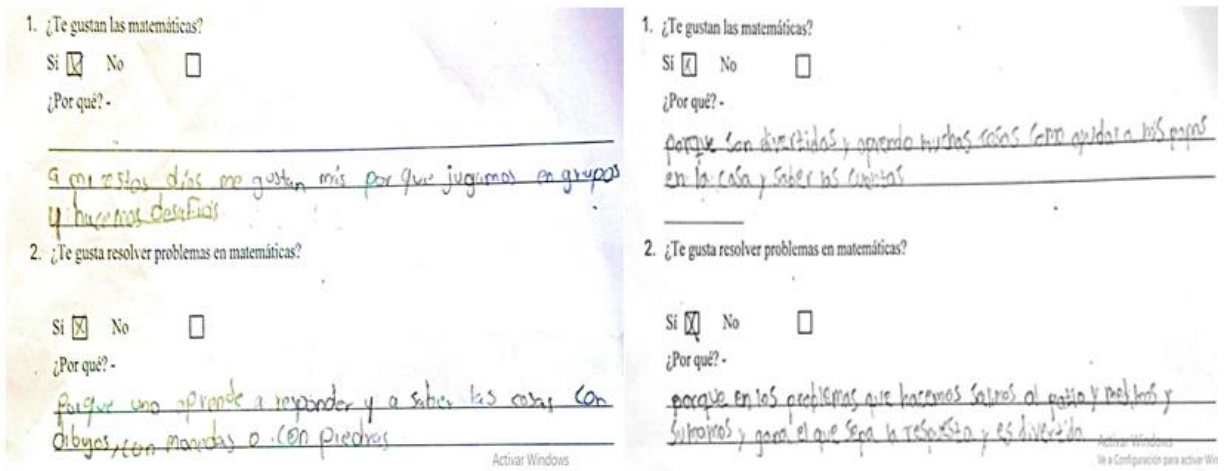 1. ¿Te gustan las matemáticas?
Si No
¿Por qué? -
a mi estos días me gustan más por que jugamos en grupos
y hacemos desafios
2. ¿Te gusta resolver problemas en matemáticas?
Si No
¿Por qué? -
Porque uno aprende a responder y a saber las cosas con
dibujos, con monedas o con piedras
Activar Windows
1. ¿Te gustan las matemáticas?
Si No
¿Por qué? -
porque son divertidas y aprendo muchas cosas como ayudar a mis papas
en la casa y saber las cuentas
2. ¿Te gusta resolver problemas en matemáticas?
Si No
¿Por qué? -
porque en los problemas que hacemos salimos al patio y medimos y
sumamos y gana el que sepa la respuesta y es divertido
Activar Windows
Ve a Configuración para activar Win